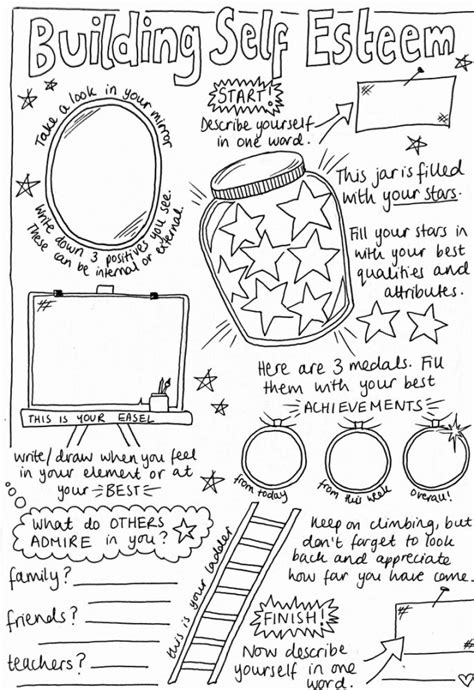 Building Self Esteem
Take a look in your mirror
Write down 3 positives you see.
These can be internal or external.
START!
Describe yourself
in one word.
This jar is filled
with your stars.
Fill your stars in
with your best
qualities and
attributes.
THIS IS YOUR EASEL
Write/draw when you feel
in your element or at
your BEST
Here are 3 medals. Fill
them with your best
ACHIEVEMENTS
from today
from this week
overall!
What do OTHERS
ADMIRE in you?
family?
friends?
teachers?
this is your ladder
Keep on climbing, but
don't forget to look
back and appreciate
how far you have come.
FINISH!
Now describe
yourself in one
word.